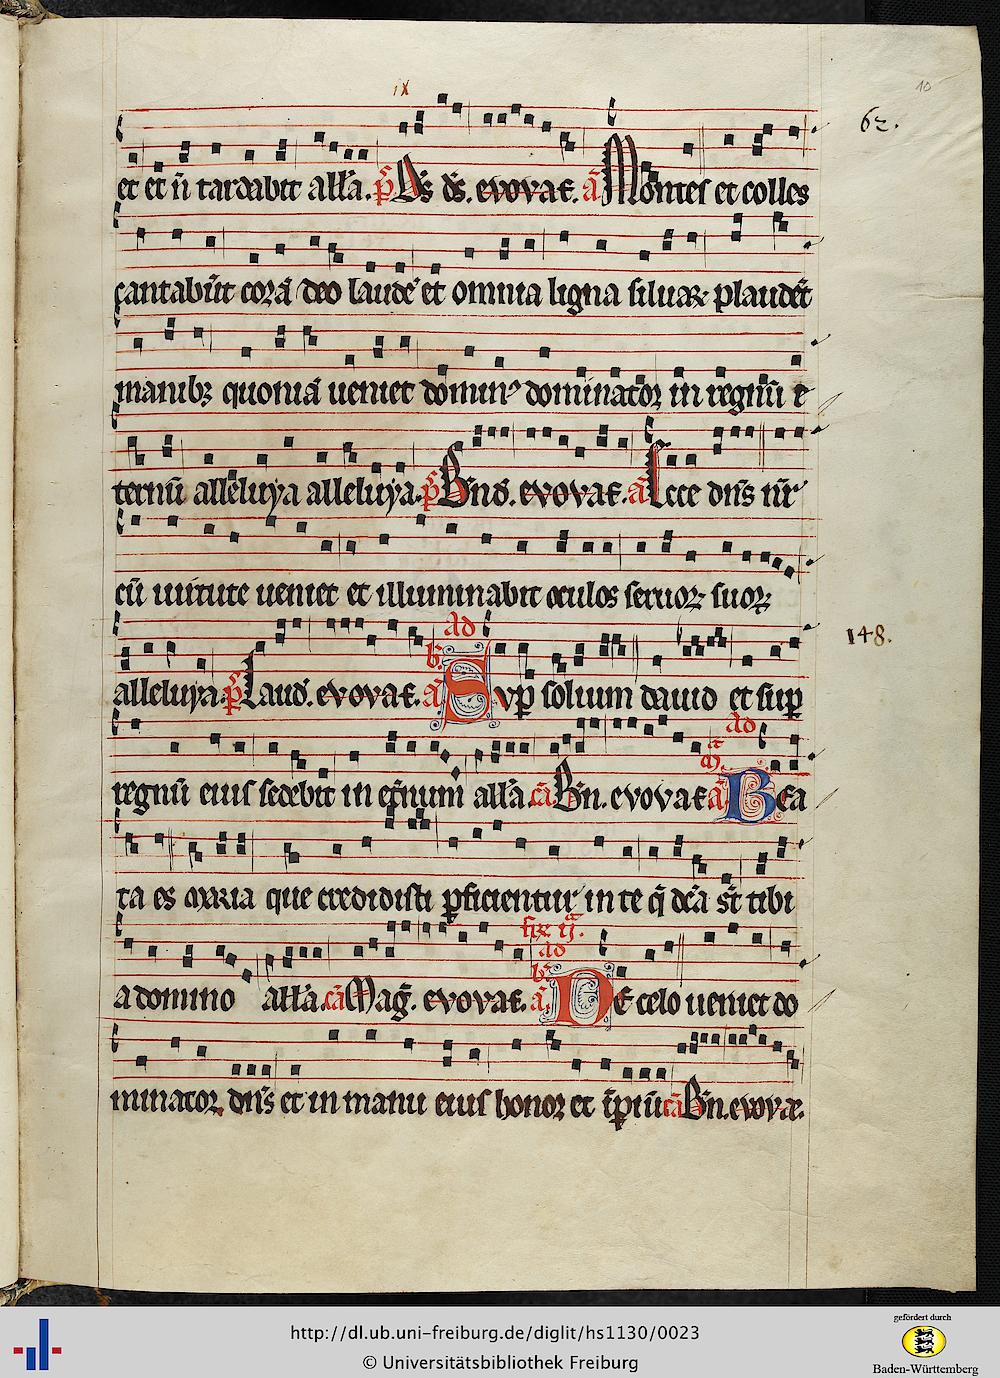 ix
10
62.
et et n̄ tardabit all'a. p̄s Ds ds. evovae. a͞ Montes et colles
cantabūt corā deo laudē et omnia ligna siluaꝝ plaudēt
manibꝫ quoniā ueniet dominꝰ dominator in regnū e
ternū alleluya alleluya. p̄s Bnd. evovae. a͞ Ecce dn̄s nr̄
cū uirtute ueniet et illuminabit oculos seruoꝝ suoꝝ
148.
ad
b.
alleluya. p̄s Laud. evovae. a͞ Sup solium dauid et sup
ad
m.
regnū eius sedebit in et̄num all'a. c͞a Bn. evovae a͞ Bea
ta es maria que credidisti ꝑficientur in te q̄ dc̄a st̄ tibi
fr̄a ij.
ad
b.
a domino all'a. c͞a Mag. evovae. a͞. De celo ueniet do
minator dn̄s et in manu eius honor et īpiū c͞a Bn. evovae.
http://dl.ub.uni-freiburg.de/diglit/hs1130/0023
© Universitätsbibliothek Freiburg
gefördert durch
Baden-Württemberg